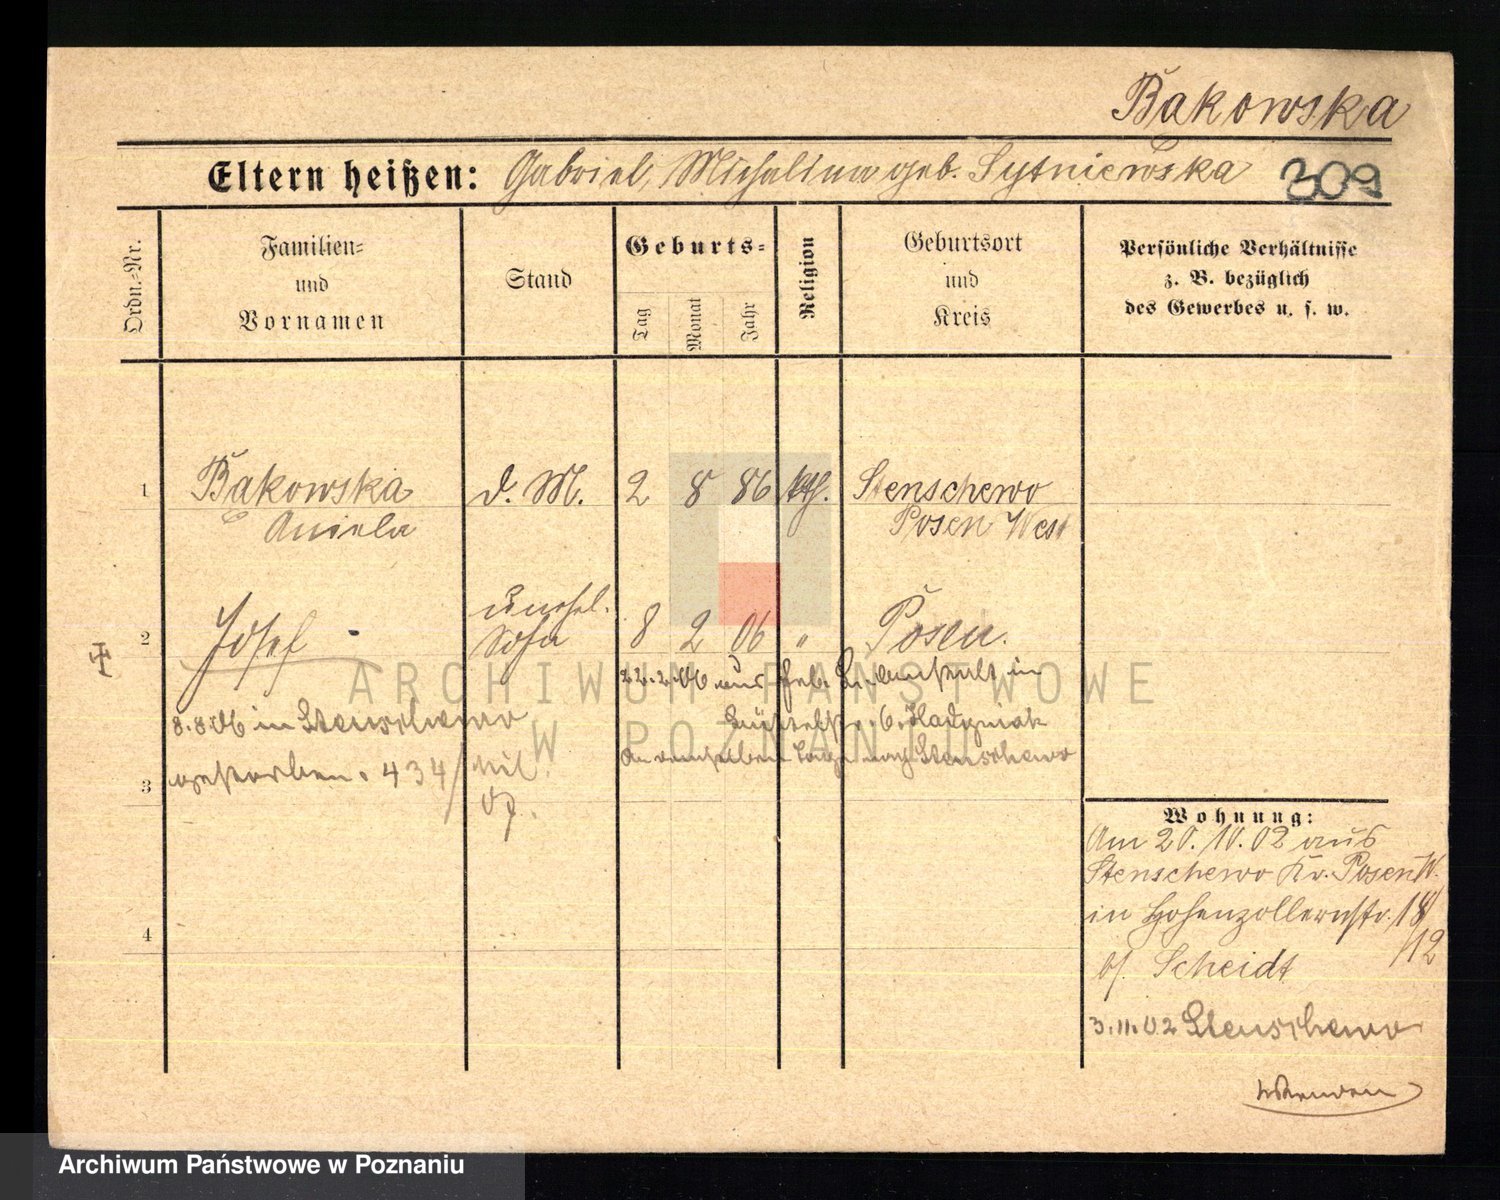 Bąkowska
Eltern heißen: Gabriel, Michalina geb. Sytniewska 309
Ordn.-Nr.
Familien-
und
Vornamen
Stand
Geburts-
Tag
Monat
Jahr
Religion
Geburtsort
und
Kreis
Persönliche Verhältnisse
z. B. bezüglich
des Gewerbes u. s. w.
1 Bąkowska d. M. 2 8 86 kth. Stenschewo
Aniela Posen West
unehel.
2 Josef Sohn 8 2 06 " Posen.
22.2.06 aus Heb. in
8.8.06 in Stenschewo
gestorben. 434/
Am nach Stenschewo
3
4
Wohnung:
Am 20.10.02 aus
Stenschewo Kr. Posen W.
in Hohenzollernstr. 18/12
b/ Scheidt
3.11.02 Stenschewo
ARCHIWUM PAŃSTWOWE
W POZNANIU
Archiwum Państwowe w Poznaniu